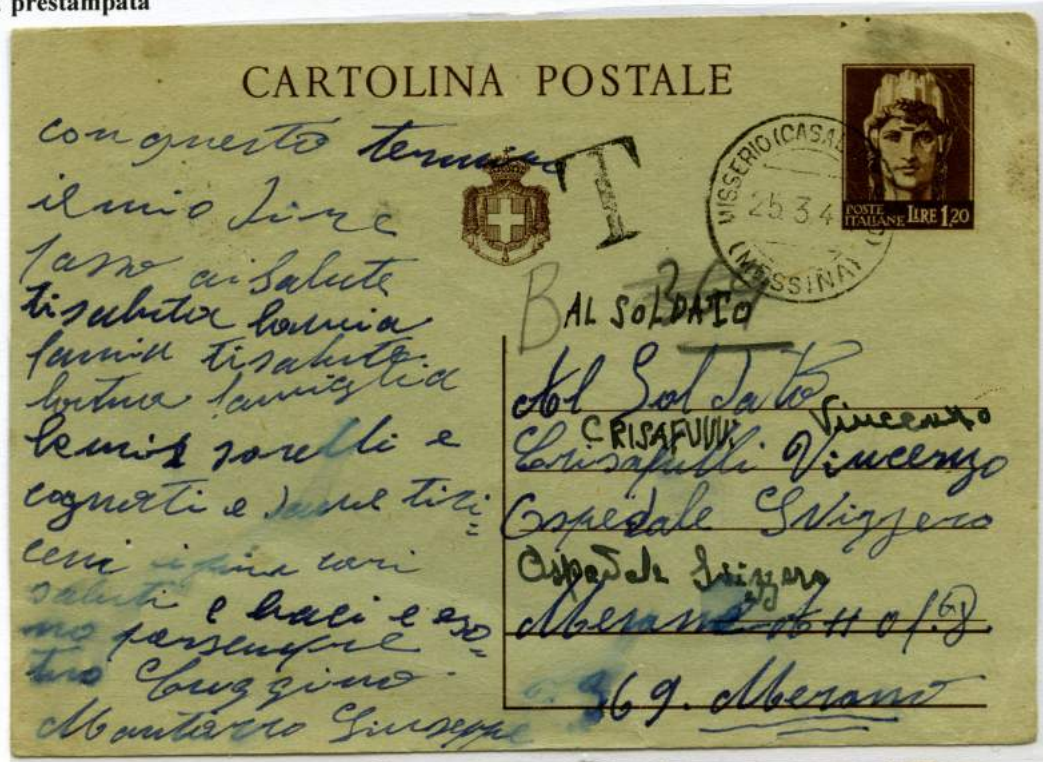 prestampata
CARTOLINA POSTALE
con questo termino
il mio dire
passo ai Salute
ti saluta la mia
famia ti saluta
la tua famiglia
le mie sorelli e
cognati e da me tiri=
cevi i piu cari
saluti e baci e eso=
no per sempre
tuo Cuggino
Mantarro Giuseppe
T
MISSERIO (CASAL
25 3 4
(MESSINA)
POSTE ITALIANE LIRE 1,20
B 369
AL SOLDATO
Al Soldato
CRISAFULLI Vincenzo
Crisafulli Vincenzo
Ospedale Svizzero
Ospedale Svizzero
Merano
369. Merano